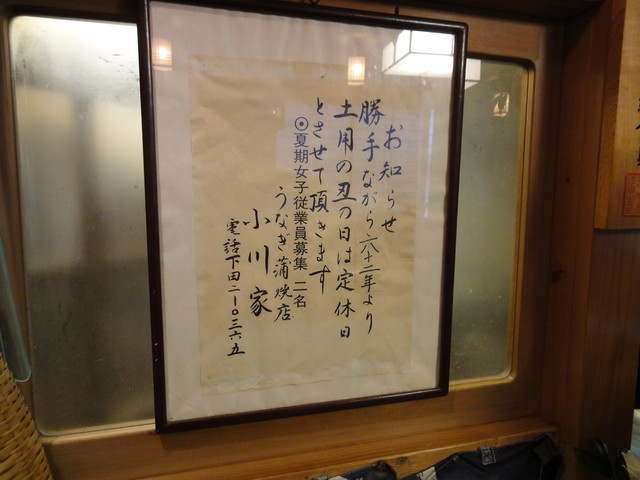 お知らせ
勝手ながら六十二年より
土用の丑の日は定休日
とさせて頂きます
◎夏期女子従業員募集 二名
うなぎ蒲焼店
小川家
電話下田二ー〇三六五